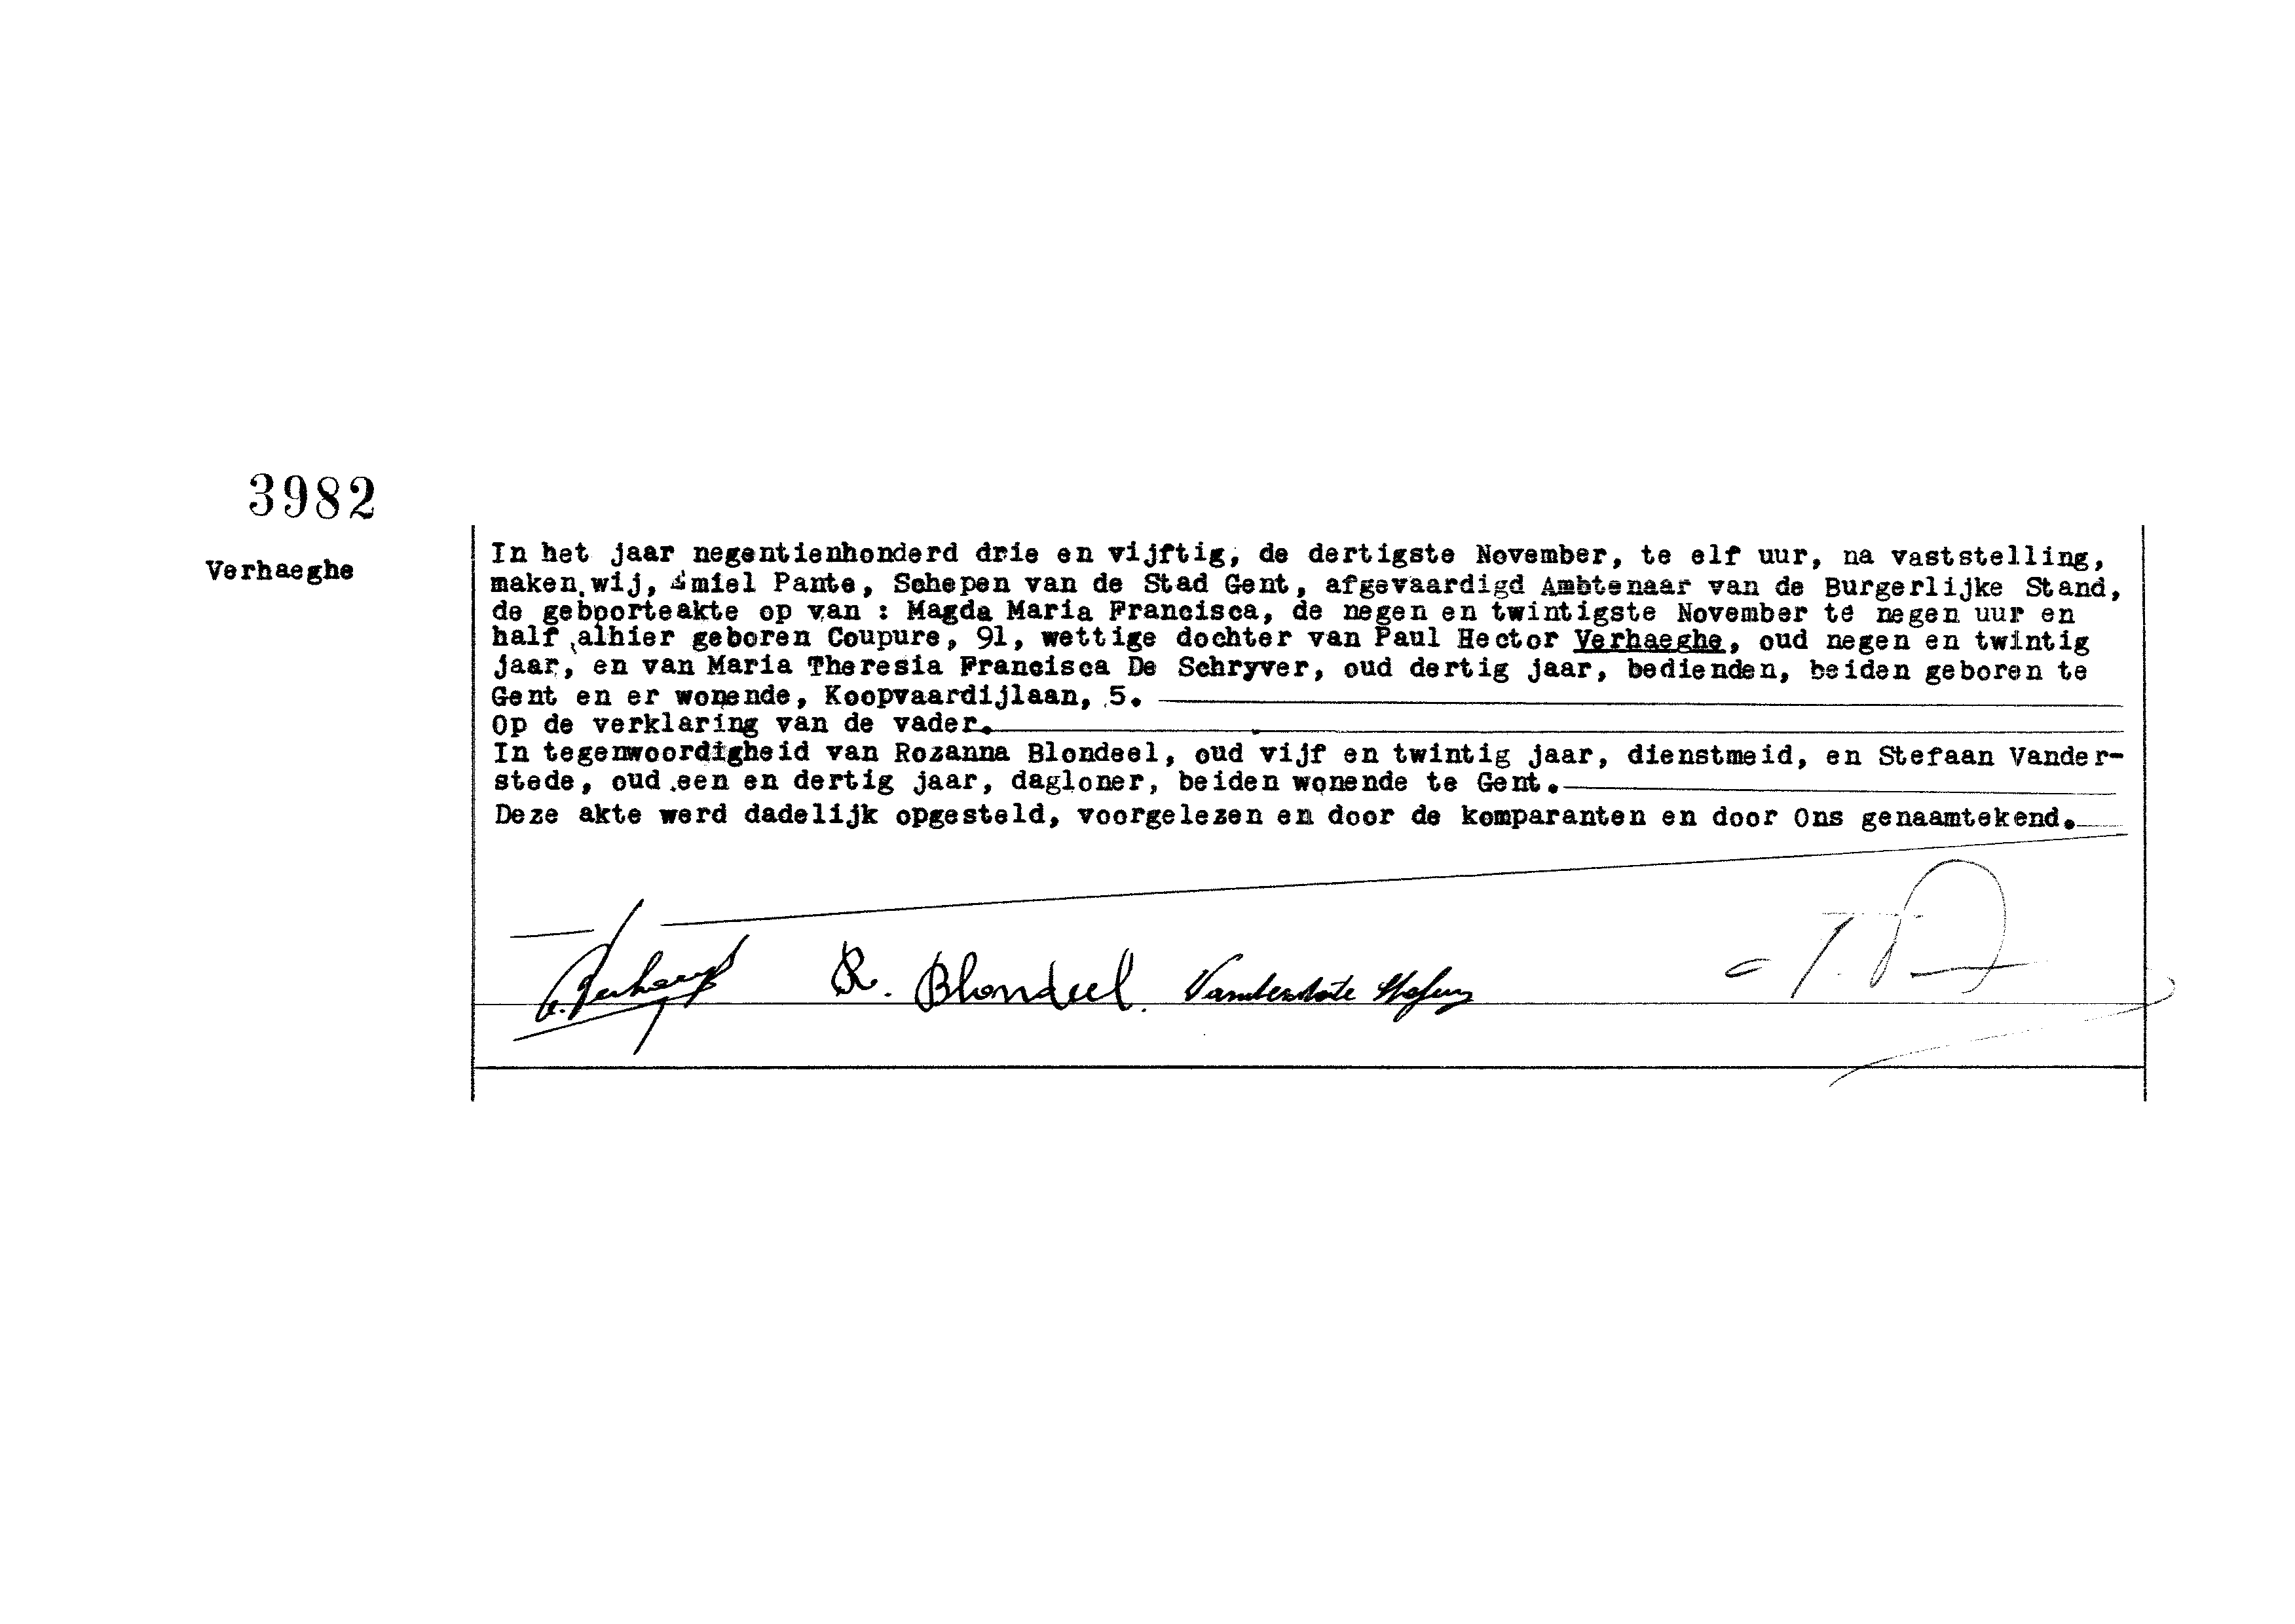 3982
Verhaeghe
In het jaar negentienhonderd drie en vijftig, de dertigste November, te elf uur, na vaststelling,
maken wij, Emiel Pante, Schepen van de Stad Gent, afgevaardigd Ambtenaar van de Burgerlijke Stand,
de geboorteakte op van : Magda Maria Francisca, de negen en twintigste November te negen uur en
half alhier geboren Coupure, 91, wettige dochter van Paul Hector Verhaeghe, oud negen en twintig
jaar, en van Maria Theresia Francisca De Schryver, oud dertig jaar, bedienden, beiden geboren te
Gent en er wonende, Koopvaardijlaan, 5.
Op de verklaring van de vader.
In tegenwoordigheid van Rozanna Blondeel, oud vijf en twintig jaar, dienstmeid, en Stefaan Vander-
stede, oud een en dertig jaar, dagloner, beiden wonende te Gent.
Deze akte werd dadelijk opgesteld, voorgelezen en door de komparanten en door Ons genaamtekend.
R. Blondeel.